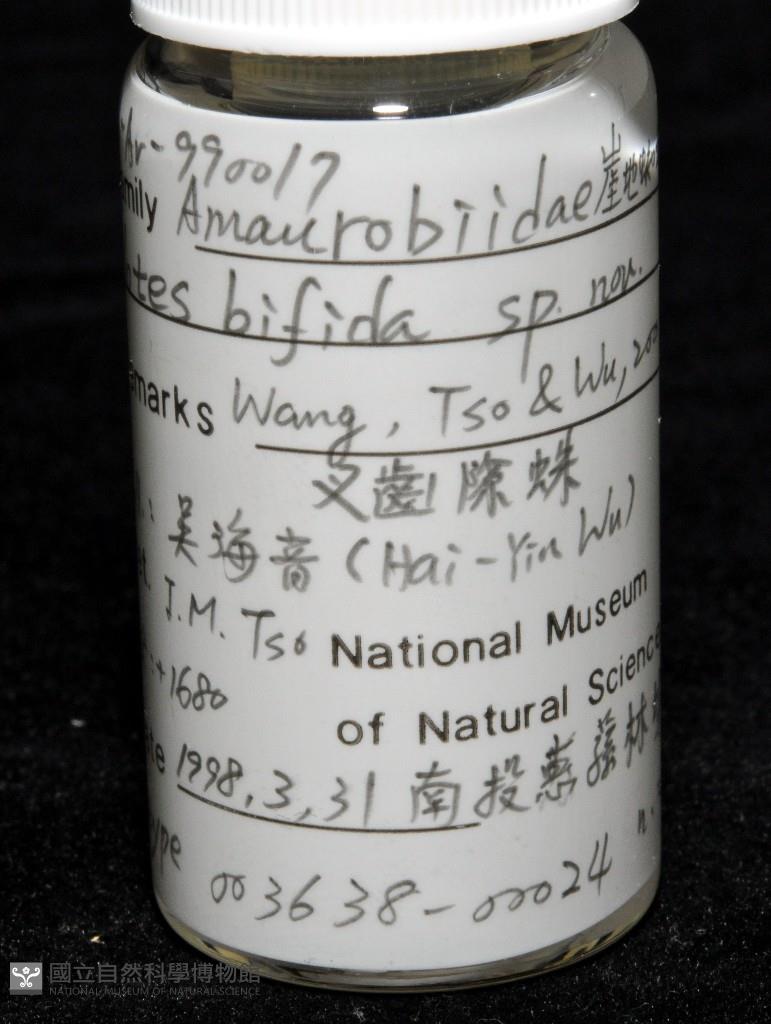 Ar-990017
mily Amaurobiidae 崖地蛛
tes bifida sp. nov.
marks Wang, Tso & Wu, 200
叉齒隙蛛
吳海音 (Hai-Yin Wu)
t. I.M. Tso National Museum
+1680 of Natural Science
te 1998,3,31 南投惠蓀林
ype 003638-00024
國立自然科學博物館
NATIONAL MUSEUM OF NATURAL SCIENCE